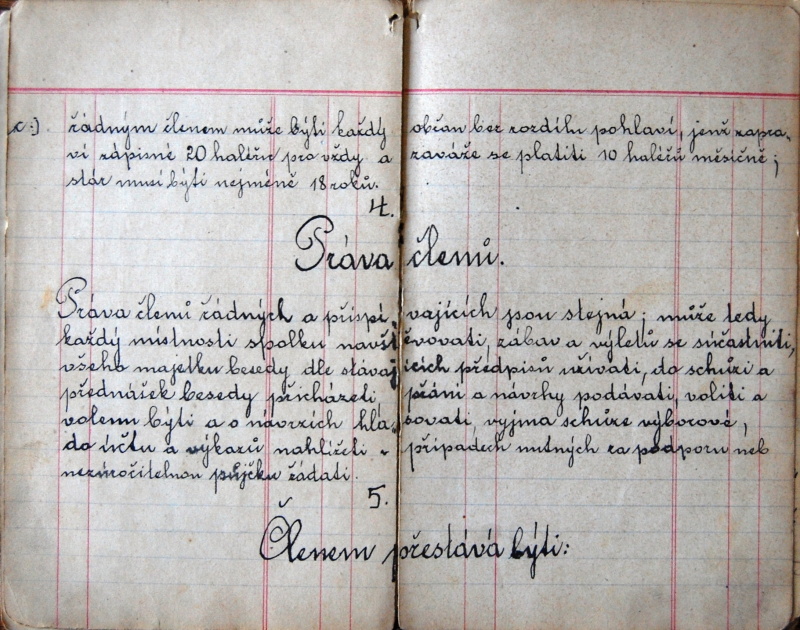 c:) řádným členem může býti každý občan bez rozdílu pohlaví, jenž zapra-
ví zápisné 20 haléřů pro vždy a zaváže se platiti 10 haléřů měsíčně;
stár musí býti nejméně 18 roků.
4.
Práva členů.
Práva členů řádných a přispívajících jsou stejná; může tedy
každý místnosti spolku navštěvovati, zábav a výletů se súčastniti,
všeho majetku besedy dle stávajících předpisů užívati, do schůzí a
přednášek besedy přicházeti, přání a návrhy podávati, voliti a
volenu býti a o návrzích hlasovati, vyjma schůze výborové,
do účtu a výkazů nahlížeti v případech nutných za podporu neb
nezúročitelnou půjčku žádati.
5.
Členem přestává býti: